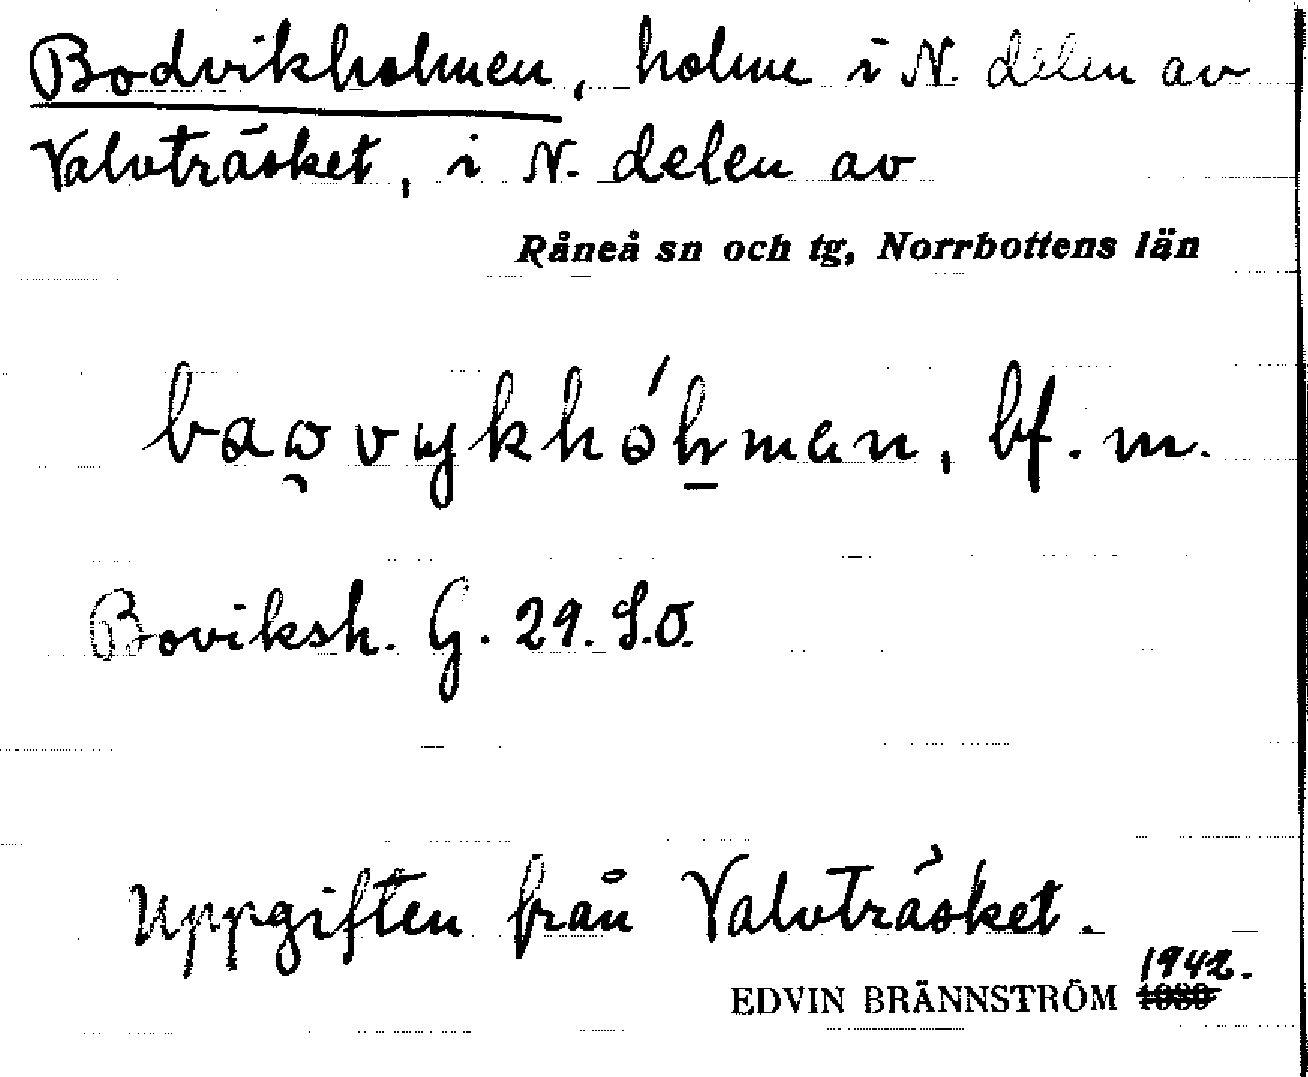 Bodvikholmen, holme i N. delen av
Valvträsket, i N. delen av
Råneå sn och tg, Norrbottens län
bf. m.
Boviksh. G. 29. S.O.
Uppgiften från Valvträsket.
1942.
EDVIN BRÄNNSTRÖM